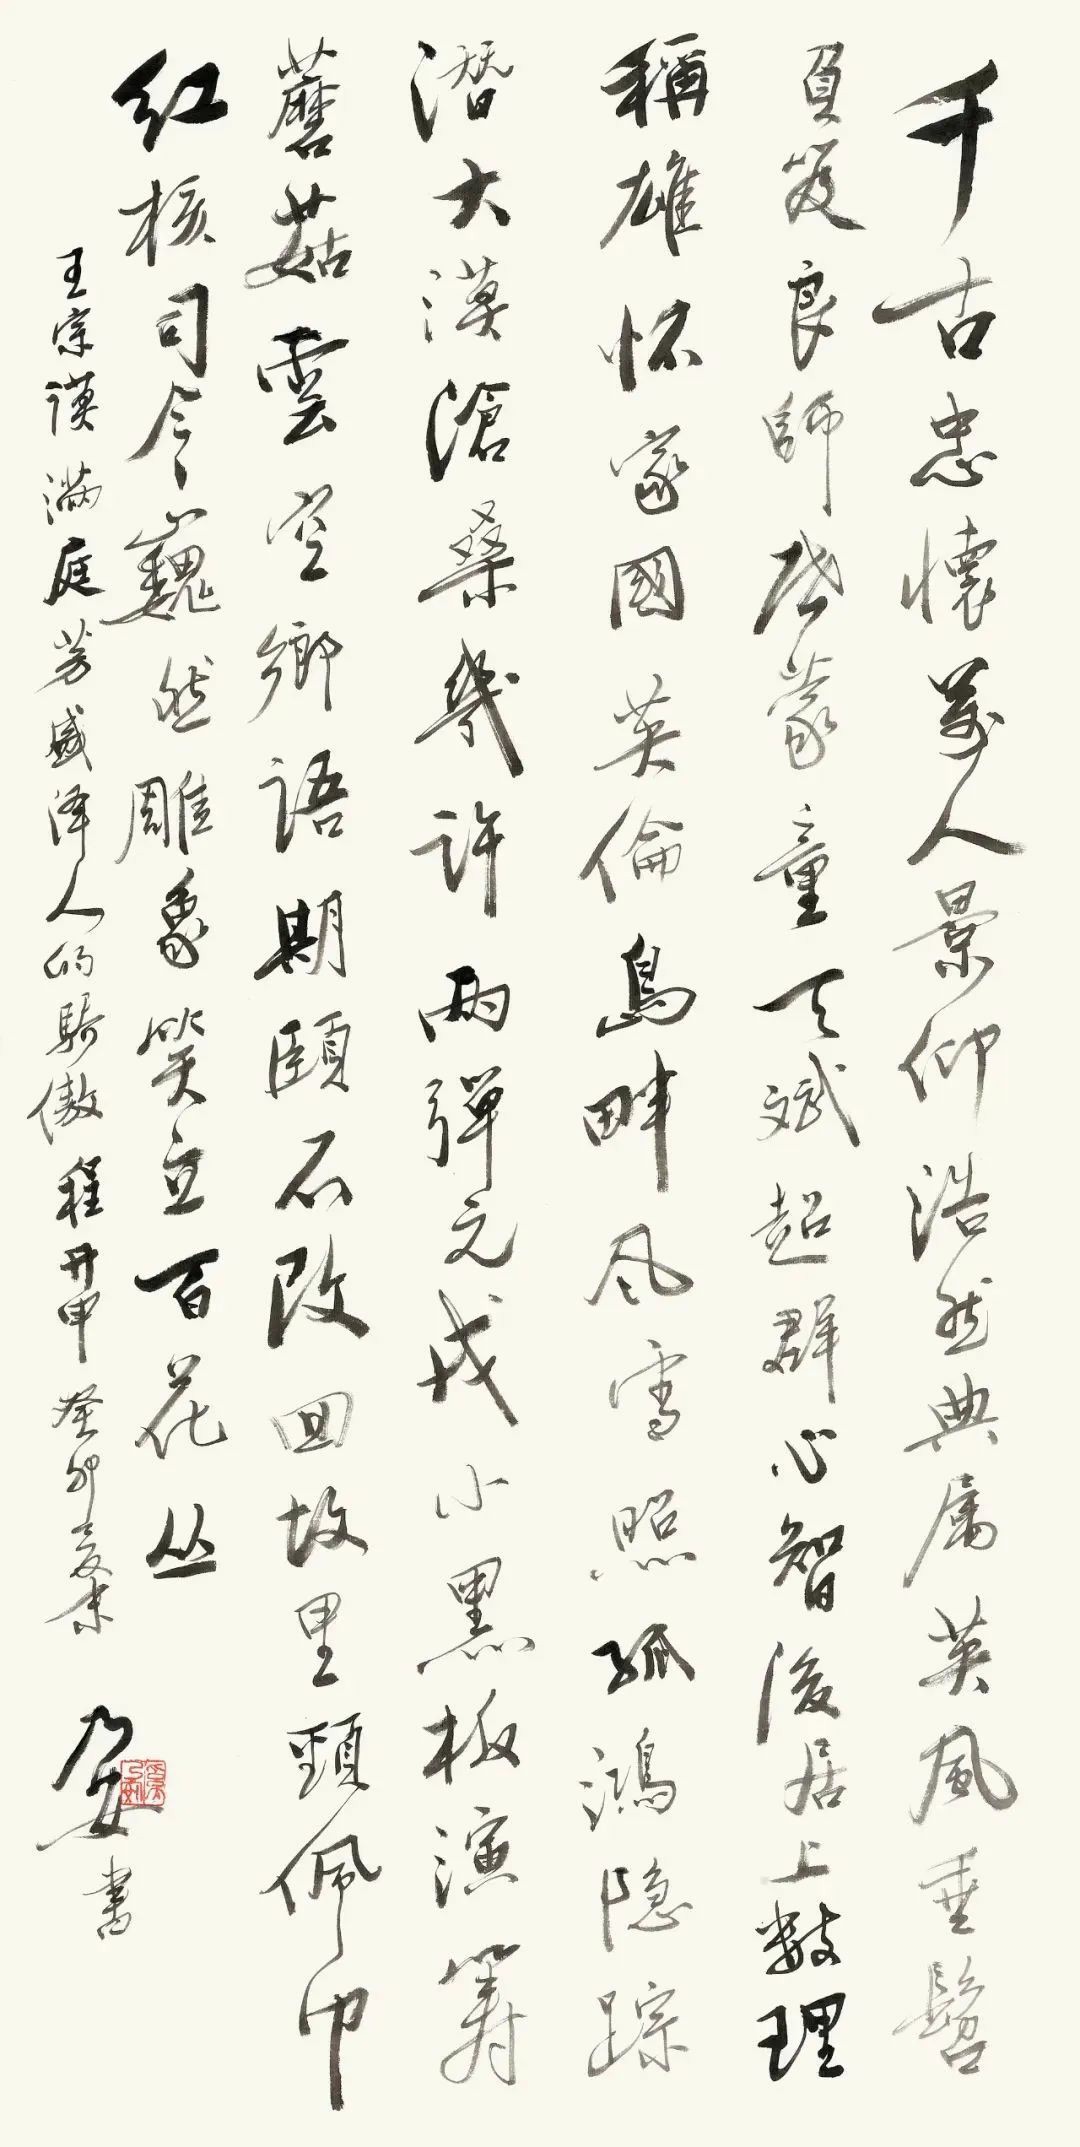 千古忠懷萬人景仰浩然典属英風垂髫
負笈良師啓蒙童天斌超群心智後居上数理
稱雄怀家國英倫島畔风雪照孤鴻隐踪
潜大漠滄桑幾許兩彈元戎小黑板演籌
蘑菇雲空鄉語期頤不改回故里頸佩巾
红核司令巍然雕象笑立百花丛
王宗谟满庭芳盛泽人的驕傲程开甲癸卯夏末乃安書